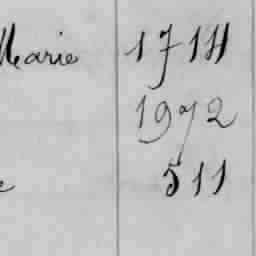 Marie 1714
1972
511